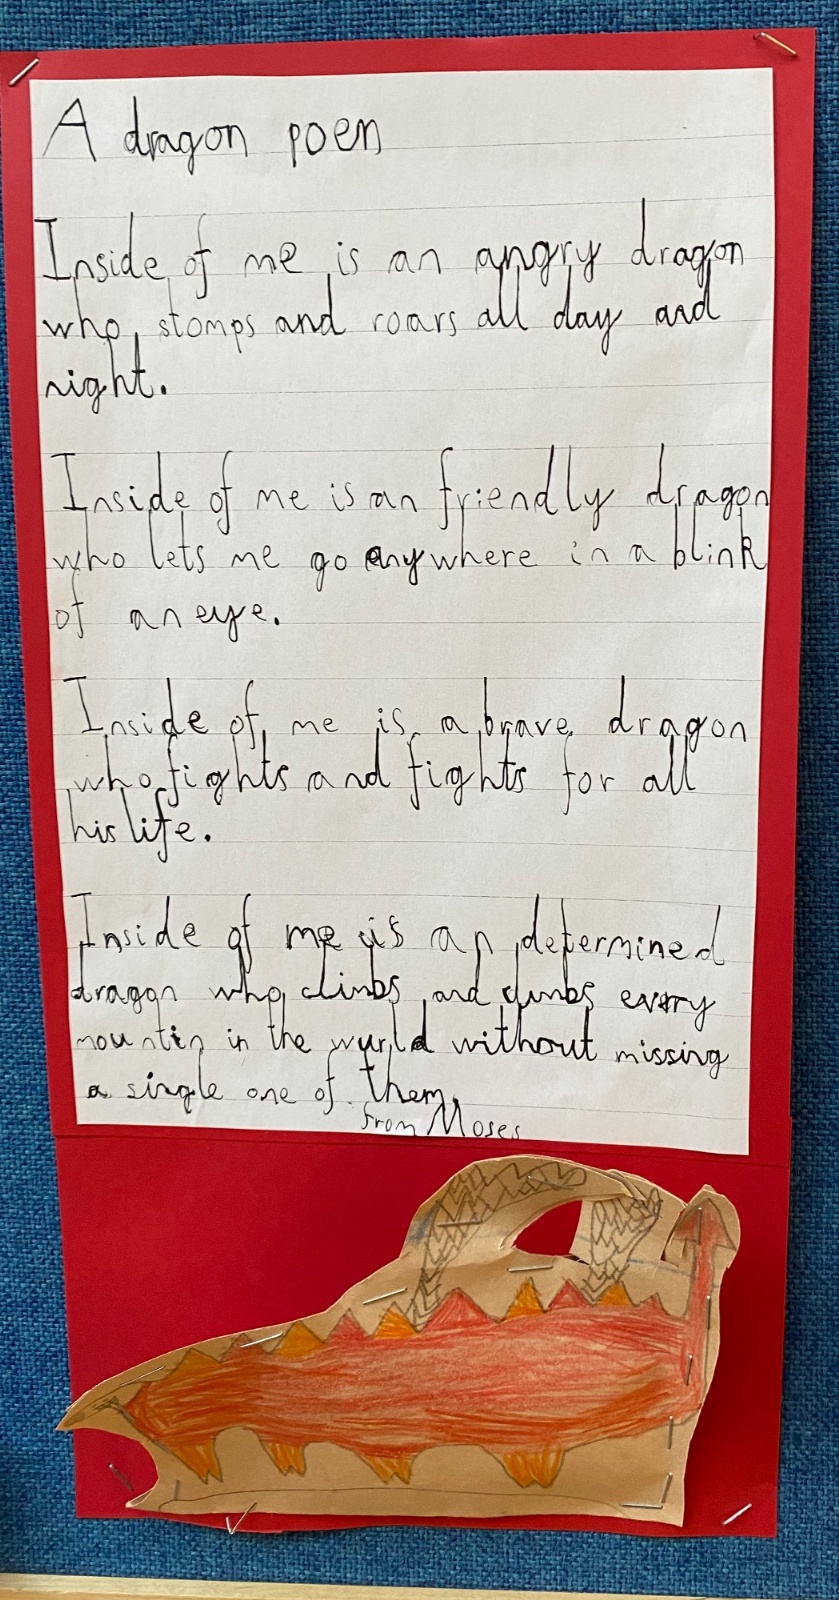 A dragon poem
Inside of me is an angry dragon
who stomps and roars all day and
night.
Inside of me is an friendly dragon
who lets me go anywhere in a blink
of an eye.
Inside of me is a brave dragon
who fights and fights for all
his life.
Inside of me is an determined
dragon who climbs and climbs every
mountin in the wurld without missing
a single one of them.
from Moses